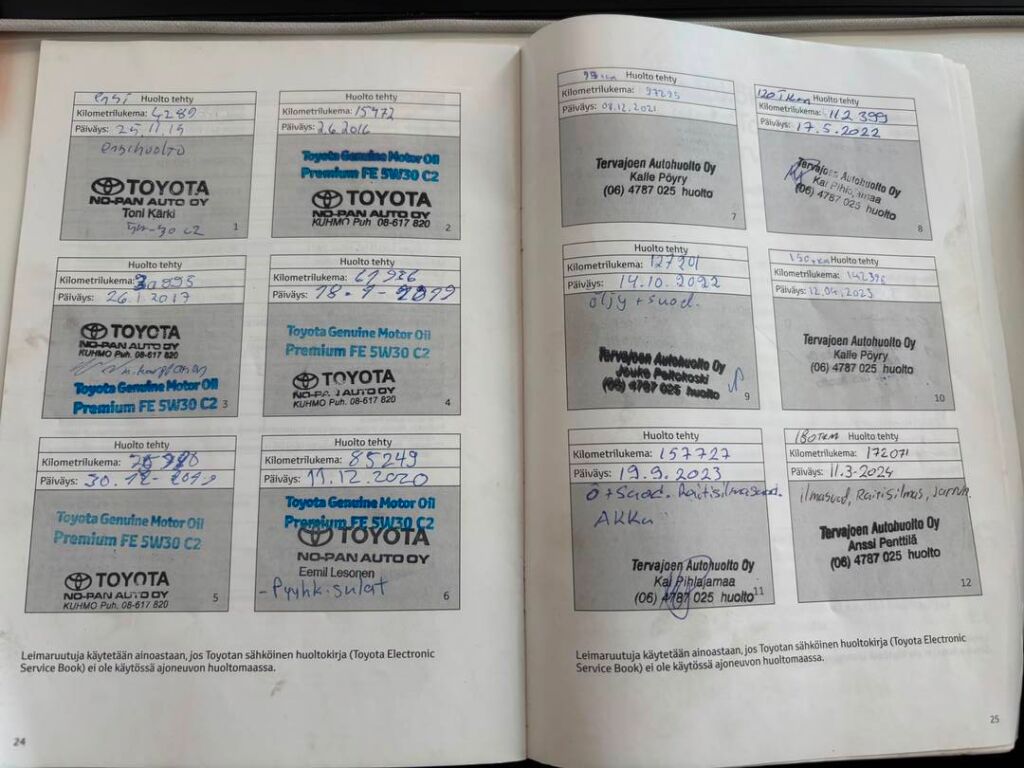 ensi Huolto tehty
Kilometrilukema: 4289
Päiväys: 25.11.15
ensihuolto
TOYOTA
NO-PAN AUTO OY
Toni Kärki
5W-30 C2
1
Huolto tehty
Kilometrilukema: 15472
Päiväys: 2.6.2016
Toyota Genuine Motor Oil
Premium FE 5W30 C2
TOYOTA
NO-PAN AUTO OY
KUHMO Puh. 08-617 820
2
Huolto tehty
Kilometrilukema:
Päiväys: 26.1.2017
TOYOTA
NO-PAN AUTO OY
KUHMO Puh. 08-617 820
Toyota Genuine Motor Oil
Premium FE 5W30 C2
3
Huolto tehty
Kilometrilukema:
Päiväys:
Toyota Genuine Motor Oil
Premium FE 5W30 C2
TOYOTA
NO-PAN AUTO OY
KUHMO Puh. 08-617 820
4
Huolto tehty
Kilometrilukema:
Päiväys:
Toyota Genuine Motor Oil
Premium FE 5W30 C2
TOYOTA
NO-PAN AUTO OY
KUHMO Puh. 08-617 820
5
Huolto tehty
Kilometrilukema: 85249
Päiväys: 11.12.2020
Toyota Genuine Motor Oil
Premium FE 5W30 C2
TOYOTA
NO-PAN AUTO OY
Eemil Lesonen
-Pyyhk.sulat
6
Leimaruutuja käytetään ainoastaan, jos Toyotan sähköinen huoltokirja (Toyota Electronic
Service Book) ei ole käytössä ajoneuvon huoltomaassa.
24
Huolto tehty
Kilometrilukema: 97295
Päiväys: 08.12.2021
Tervajoen Autohuolto Oy
Kalle Pöyry
(06) 4787 025 huolto
7
120 Tkm Huolto tehty
Kilometrilukema: 112 399
Päiväys: 17.5.2022
Tervajoen Autohuolto Oy
Kai Pihlajamaa
(06) 4787 025 huolto
8
Huolto tehty
Kilometrilukema: 127201
Päiväys: 14.10.2022
öljy + suod.
Tervajoen Autohuolto Oy
Jouko Peltokoski
(06) 4787 025 huolto
9
150 tkm Huolto tehty
Kilometrilukema: 142396
Päiväys: 12.04.2023
Tervajoen Autohuolto Oy
Kalle Pöyry
(06) 4787 025 huolto
10
Huolto tehty
Kilometrilukema: 157727
Päiväys: 19.9.2023
Ö + Suod. Raitisilmasuod.
AKKU
Tervajoen Autohuolto Oy
Kai Pihlajamaa
(06) 4787 025 huolto
11
180 TKM Huolto tehty
Kilometrilukema: 172071
Päiväys: 11.3-2024
ilmasuod, Raitisilmas, Jarrun
Tervajoen Autohuolto Oy
Anssi Penttilä
(06) 4787 025 huolto
12
Leimaruutuja käytetään ainoastaan, jos Toyotan sähköinen huoltokirja (Toyota Electronic
Service Book) ei ole käytössä ajoneuvon huoltomaassa.
25